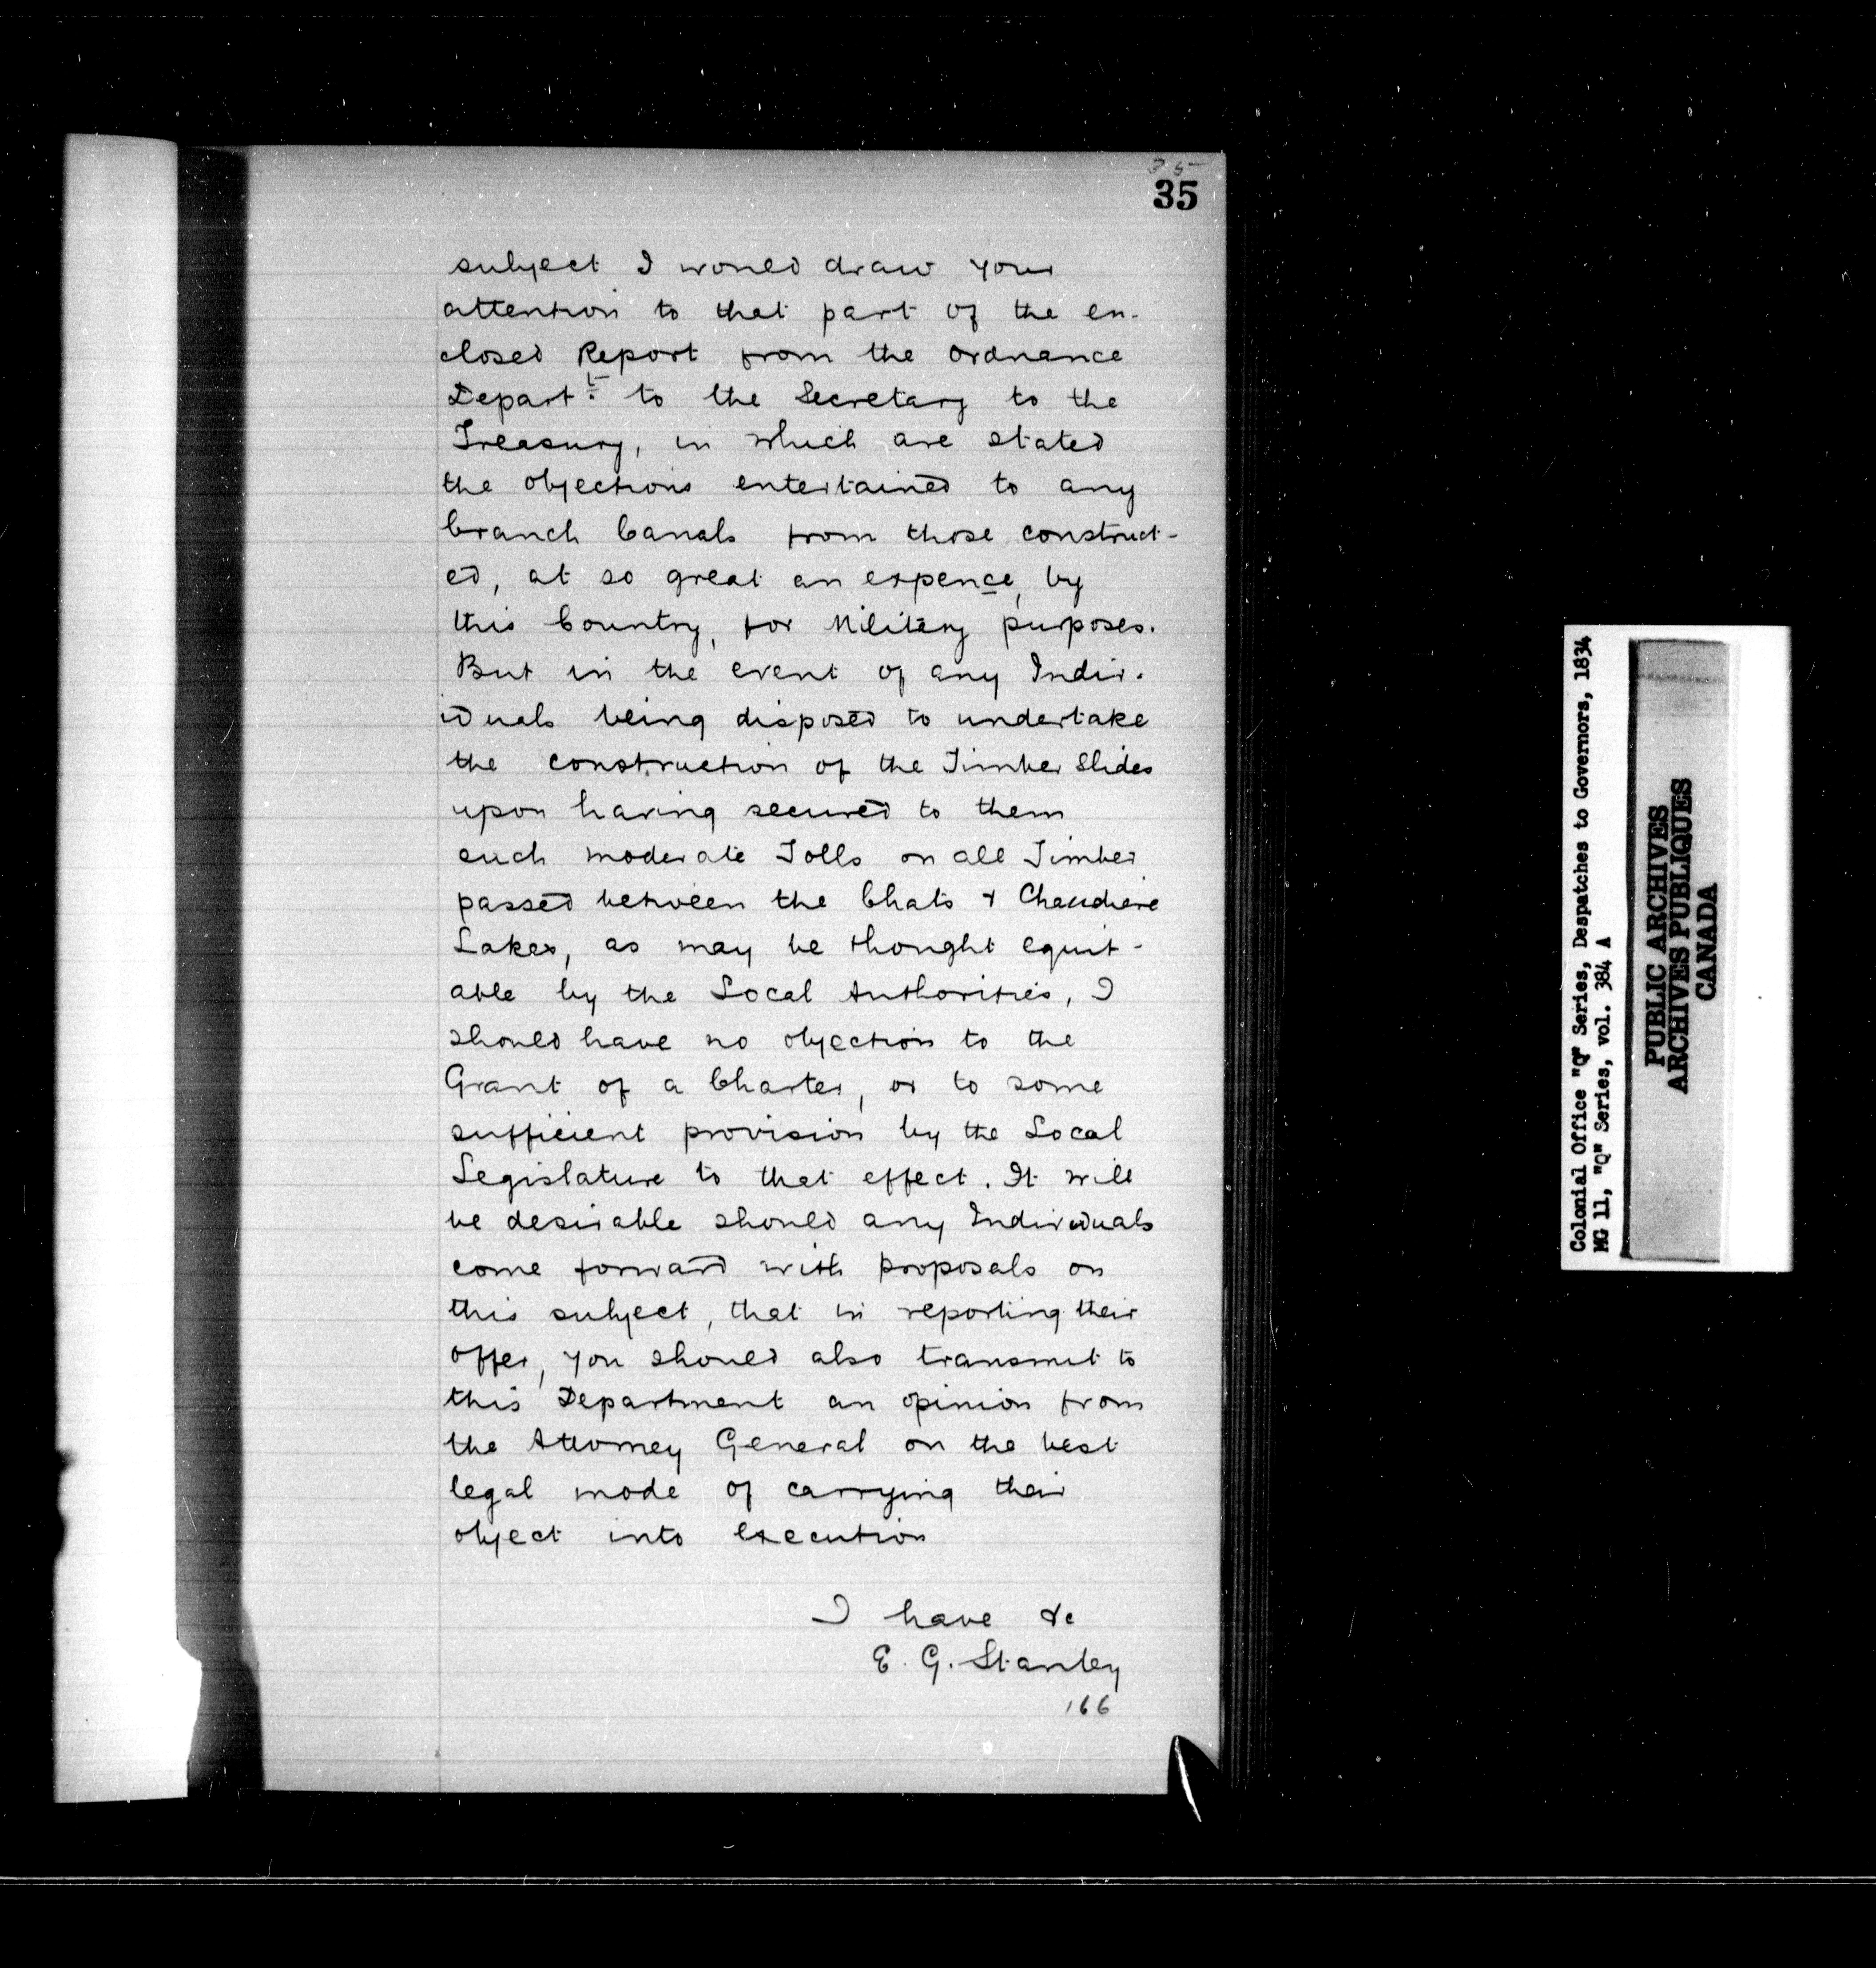 35
35
subject I would draw your
attention to that part of the en-
closed Report from the Ordnance
Depart.t to the Secretary to the
Treasury, in which are stated
the objections entertained to any
branch Canals from those construct-
ed, at so great an expence, by
this Country, for Military purposes.
But in the event of any Indiv-
iduals being disposed to undertake
the construction of the Timber Slides
upon having secured to them
such moderate Tolls on all Timber
passed between the Chats & Chaudiere
Lakes, as may be thought equit-
able by the Local Authorities, I
should have no objection to the
Grant of a Charter, or to some
sufficient provision by the Local
Legislature to that effect. It will
be desirable should any Individuals
come forward with proposals on
this subject, that in reporting their
offer, you should also transmit to
this Department an opinion from
the Attorney General on the best
legal mode of carrying their
object into execution
I have &c
E. G. Stanley
166
Colonial Office "Q" Series, Despatches to Governors, 1834
MG 11, "Q" Series, vol. 384 A
PUBLIC ARCHIVES
ARCHIVES PUBLIQUES
CANADA